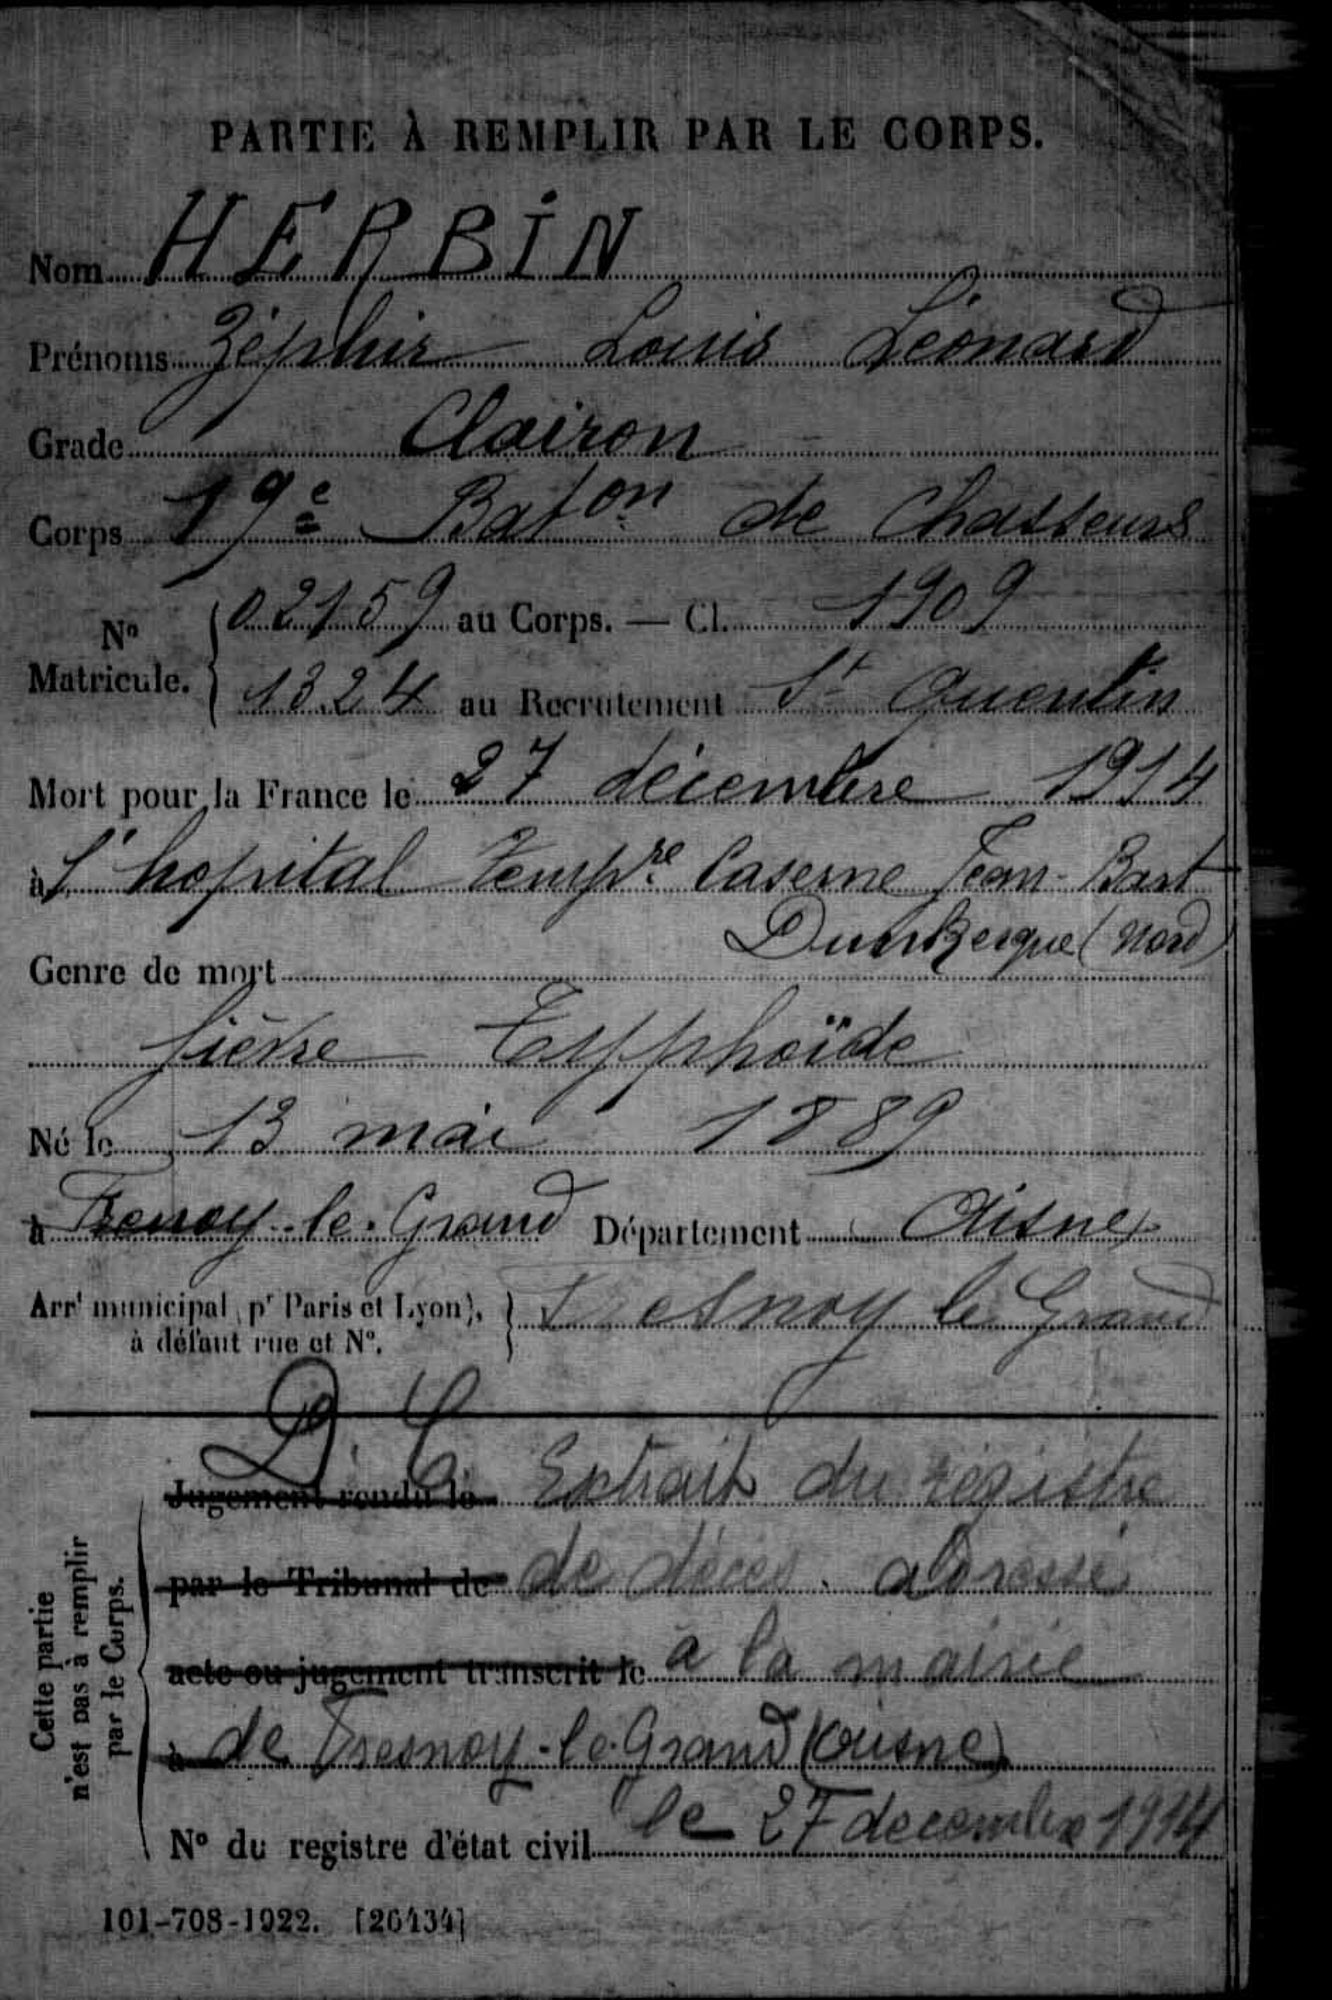 PARTIE À REMPLIR PAR LE CORPS.
Nom HERBIN
Prénoms Zéphir Louis Léonard
Grade Clairon
Corps 19e Baton de Chasseurs
No Matricule. 02159 au Corps. — Cl. 1909
1324 au Recrutement St Quentin
Mort pour la France le 27 décembre 1914
à l'hopital tempre Caserne Jean-Bart
Dunkerque (Nord)
Genre de mort
fièvre Typhoïde
Né le 13 mai 1889
à Frenoy-le-Grand Département Aisne
Arrt municipal (pr Paris et Lyon), à défaut rue et No. Fresnoy le Grand
D.C.
Jugement rendu le Extrait du registre
par le Tribunal de de décès. adressé
acte ou jugement transcrit le à la mairie
à de Fresnoy-le-Grand (Aisne)
No du registre d'état civil le 27 decembre 1914
Cette partie n'est pas à remplir par le Corps.
101-708-1922. [26434]